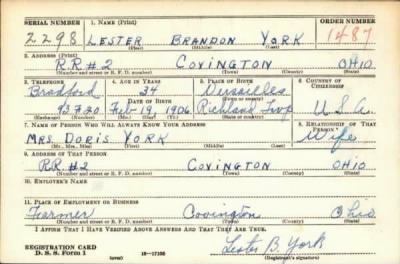 SERIAL NUMBER 1. NAME (Print) ORDER NUMBER
2298 LESTER BRANDON YORK 1487
(First) (Middle) (Last)
2. ADDRESS (Print)
R.R.#2 COVINGTON OHIO
(Number and street or R. F. D. number) (Town) (County) (State)
3. TELEPHONE 4. AGE IN YEARS 5. PLACE OF BIRTH 6. COUNTRY OF CITIZENSHIP
Bradford 34 Versailles
DATE OF BIRTH
Feb-19, 1906 Richland Twp U.S.A.
(Exchange) (Number) (Mo.) (Day) (Yr.) (State or country)
7. NAME OF PERSON WHO WILL ALWAYS KNOW YOUR ADDRESS 8. RELATIONSHIP OF THAT PERSON
MRS. DORIS YORK Wife
(Mr., Mrs., Miss) (First) (Middle) (Last)
9. ADDRESS OF THAT PERSON
RR#2 COVINGTON OHIO
(Number and street or R. F. D. number) (Town) (County) (State)
10. EMPLOYER'S NAME
11. PLACE OF EMPLOYMENT OR BUSINESS
Farmer Covington Ohio
(Number and street or R. F. D. number) (Town) (County) (State)
I AFFIRM THAT I HAVE VERIFIED ABOVE ANSWERS AND THAT THEY ARE TRUE.
REGISTRATION CARD
D. S. S. Form 1 (over) Lester B. York
(Registrant's signature)